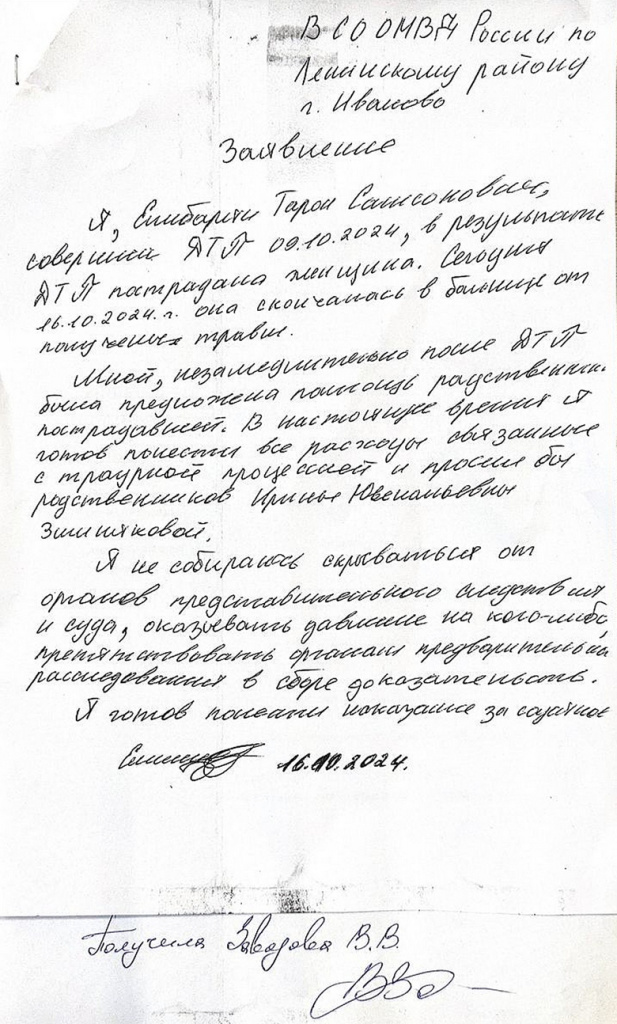 В СО ОМВД России по
Ленинскому району
г. Иваново
Заявление
Я, Тарон Самсонович,
совершил ДТП 09.10.2024, в результате
ДТП пострадала женщина. Сегодня
16.10.2024 г. она скончалась в больнице от
полученых травм.
Мной, незамедлительно после ДТП
была предложена помощь родственник
пострадавшей. В настоящее время я
готов понести все расходы связанные
с траурной процессией и просил бы
родственников Ирины Ювенальевны
Я не собираюсь скрываться от
органов представительного следствия
и суда, оказывать давление на кого-либо,
препятствовать органам предварительна
расследования в сборе доказательств.
Я готов понести наказание за
16.10.2024.
Получила В.В.